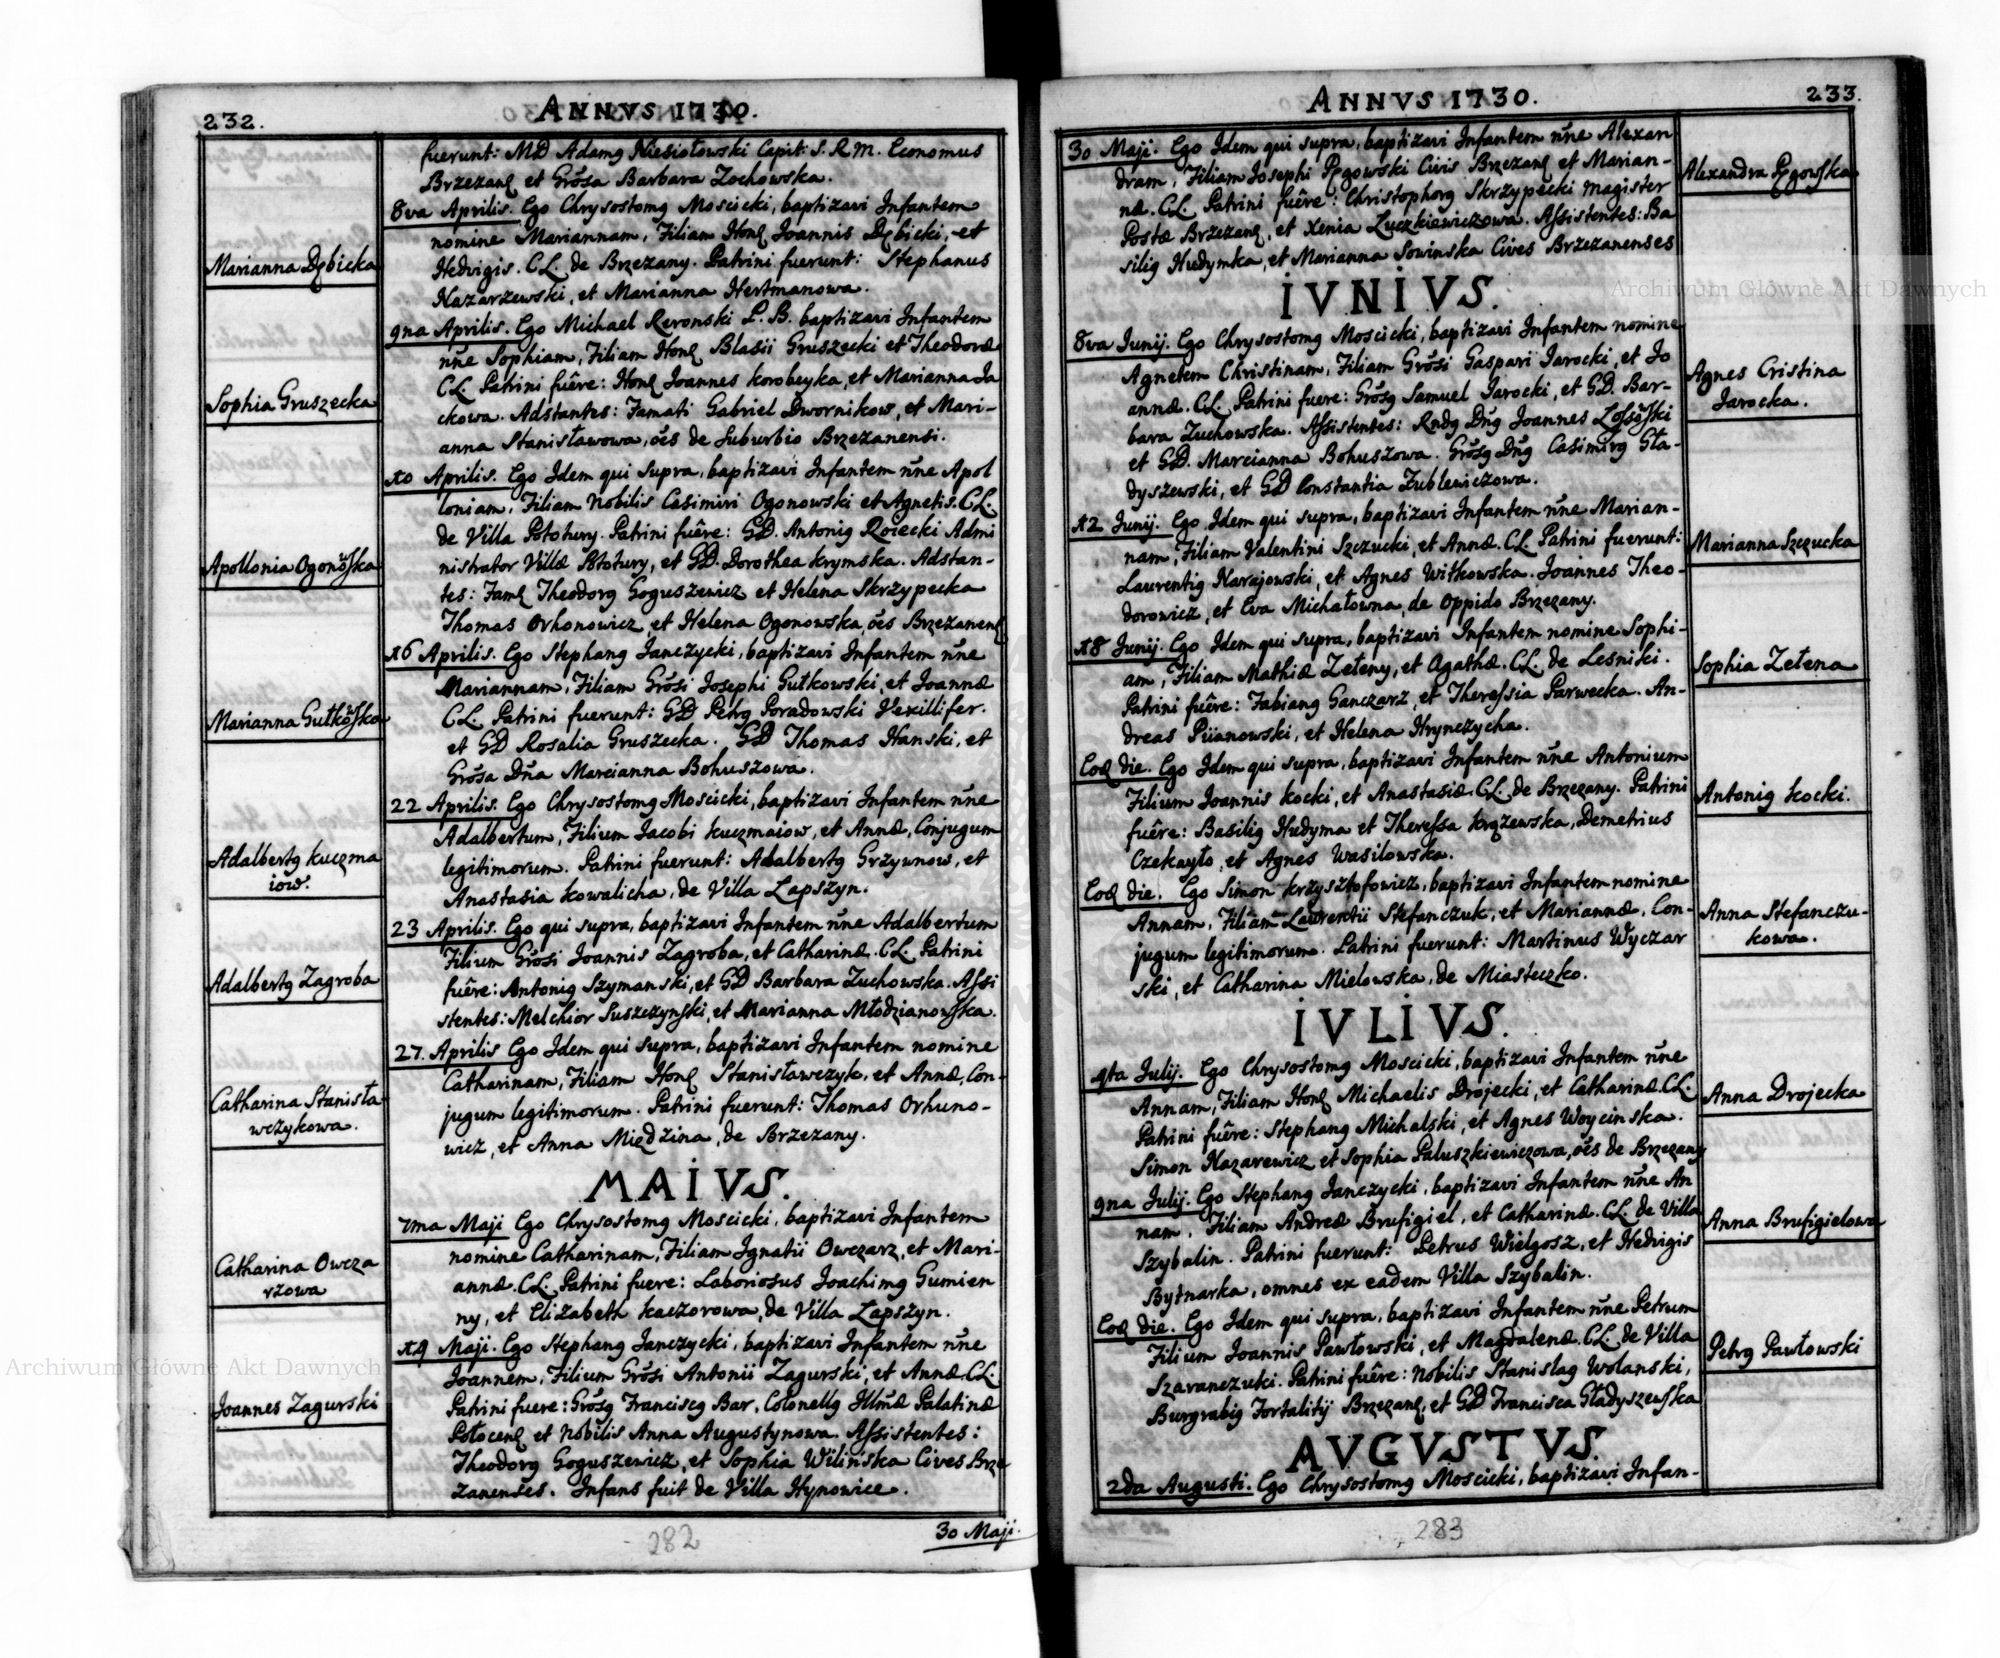 232.
ANNVS 1730.
fuerunt: MD Adamg Niesiołowski Capit: S. R. M. Economus
Brzezanę et Grõsa Barbara Zochowska.
8va Aprilis. Ego Chrysostomg Moscicki, baptizavi Infantem
nomine Mariannam, Filiam Honę Joannis Dębicki, et
Hedvigis. CL. de Brzezany. Patrini fuerunt: Stephanus
Nazarzewski, et Marianna Hertmanowa.
Marianna Dębicka
9na Aprilis. Ego Michael Reronski P. B. baptizavi Infantem
nñe Sophiam, Filiam Honę Blasii Gruszecki et Theodoræ
CL. Patrini fuêre: Honę Joannes Korobeyka, et Marianna Ja
ckowa. Adstantes: Famati Gabriel Dwornikow, et Mari-
anna Stanisławowa, oẽs de Suburbio Brzezanensi.
Sophia Gruszecka
10 Aprilis. Ego Idem qui supra, baptizavi Infantem nñe Apol
loniam, Filiam Nobilis Casimiri Ogonowski et Agnetis. CL.
de Villa Potutury. Patrini fuêre: GD. Antonig Rosecki Admi
nistrator Villæ Potutury, et GD. Dorothea Krymska. Adstan-
tes: Famę Theodorg Goguszewicz et Helena Skrzypecka
Thomas Orhonowicz et Helena Ogonowska, oẽs Brzezanenę
Apollonia Ogonowska
16 Aprilis. Ego Stephang Janczycki, baptizavi Infantem nñe
Mariannam, Filiam Grõsi Josephi Gutkowski, et Joannæ
CL. Patrini fuerunt: GD Petrg Poradowski Vexillifer.
et GD Rosalia Gruszecka. GD Thomas Hanski, et
Grõsa Dña Marcianna Bohuszowa.
Marianna Gutkowska
22 Aprilis. Ego Chrysostomg Moscicki, baptizavi Infantem nñe
Adalbertum, Filium Jacobi Kuczmaiow, et Annæ, Conjugum
legitimorum. Patrini fuerunt: Adalbertg Grzywnow, et
Anastasia Kowalicha, de Villa Łapszyn.
Adalbertg Kuczma
iow.
23 Aprilis. Ego qui supra, baptizavi Infantem nñe Adalbertum
Filium Grõsi Joannis Zagroba, et Catharinæ. CL. Patrini
fuêre: Antonig Szymanski, et GD Barbara Zuchowska. Assi
stentes: Melchior Suszczynski, et Marianna Młodzianowska.
Adalbertg Zagroba
27. Aprilis Ego Idem qui supra, baptizavi Infantem nomine
Catharinam, Filiam Honę Stanisławczyk, et Annæ, Con-
jugum legitimorum. Patrini fuerunt: Thomas Orhuno-
wicz, et Anna Miedzina, de Brzezany.
Catharina Stanisła
wczykowa.
MAIVS.
7ma Maji Ego Chrysostomg Moscicki, baptizavi Infantem
nomine Catharinam, Filiam Ignatii Owczarz, et Mari-
annæ. CL. Patrini fuere: Laboriosus Joachimg Gumien
ny, et Elizabeth Kaczorowa, de Villa Łapszyn.
Catharina Owcza
rzowa
14 Maji. Ego Stephang Janczycki, baptizavi Infantem nñe
Joannem, Filium Grõsi Antonii Zagurski, et Annæ. CL.
Patrini fuere: Grõsg Franciscg Bar, Colonellg Illmæ Palatinæ
Potocenę et Nobilis Anna Augustynowa. Assistentes:
Theodorg Goguszewicz, et Sophia Wilinska Cives Brze
zanenses. Infans fuit de Villa Hynowice.
Joannes Zagurski
30 Maji.
282
ANNVS 1730.
233.
30 Maji. Ego Idem qui supra, baptizavi Infantem nñe Alexan
dram, Filiam Josephi Pęgowski Civis Brzezanę et Marian-
næ. CL. Patrini fuêre: Christophorg Skrzypecki Magister
Postæ Brzezanę, et Xenia Łuczkiewiczowa. Assistentes: Ba
silig Hudymka, et Marianna Sowinska Cives Brzezanenses
Alexandra Pęgowska
IVNIVS.
8va Junij. Ego Chrysostomg Moscicki, baptizavi Infantem nomine
Agnetem Christinam, Filiam Grõsi Gaspari Jarocki, et Jo
annæ. CL. Patrini fuere: Grõsg Samuel Jarocki, et GD. Bar-
bara Zuchowska. Assistentes: Rndg Dñg Joannes Łossowski
et GD. Marcianna Bohuszowa. Grõsg Dñg Casimirg Gła-
dyszewski, et GD Constantia Zublewiczowa.
Agnes Cristina
Jarocka.
12 Junij. Ego Idem qui supra, baptizavi Infantem nñe Marian-
nam, Filiam Valentini Szczucki, et Annæ. CL. Patrini fuerunt:
Laurentig Narajowski, et Agnes Witkowska. Joannes Theo-
dorowicz, et Eva Michałowna, de Oppido Brzezany.
Marianna Szczucka
18 Junij. Ego Idem qui supra, baptizavi Infantem nomine Sophi-
am, Filiam Mathiæ Zeteny, et Agathæ. CL. de Lesniki.
Patrini fuêre: Fabiang Ganczarz, et Theressia Parwecka. An-
dreas Piianowski, et Helena Hrynczycha.
Sophia Zetena
Eoę die. Ego Idem qui supra, baptizavi Infantem nñe Antonium
Filium Joannis Kocki, et Anastasiæ. CL. de Brzezany. Patrini
fuêre: Basilig Hudyma et Theressa Krązewska, Demetrius
Czekayło, et Agnes Wasilowska.
Antonig Kocki.
Eoę die. Ego Simon Krzysztofowicz, baptizavi Infantem nomine
Annam, Filiam Laurentii Stefanczuk, et Mariannæ, Con-
jugum legitimorum. Patrini fuerunt: Martinus Wyczar
ski, et Catharina Mielowska, de Miasteczko.
Anna Stefanczu-
kowa.
IVLIVS.
4ta Julij. Ego Chrysostomg Moscicki, baptizavi Infantem nñe
Annam, Filiam Honę Michaelis Drojecki, et Catharinæ. CL.
Patrini fuêre: Stephang Michalski, et Agnes Woycinska.
Simon Nazarewicz et Sophia Paluszkiewiczowa, oẽs de Brzezany
Anna Drojecka
9na Julij. Ego Stephang Janczycki, baptizavi Infantem nñe An
nam, Filiam Andreæ Brufigiel, et Catharinæ. CL. de Villa
Szybalin. Patrini fuerunt: Petrus Wielgosz, et Hedvigis
Bytnarka, omnes ex eadem Villa Szybalin.
Anna Brufigielowa
Eoę die. Ego Idem qui supra, baptizavi Infantem nñe Petrum
Filium Joannis Pawłowski, et Magdalenæ. CL. de Villa
Szaranczuki. Patrini fuêre: Nobilis Stanislag Wolanski,
Burgrabig Fortalitij Brzezanę, et GD Francisca Gładyszewska
Petrg Pawłowski
AVGVSTVS.
2da Augusti. Ego Chrysostomg Moscicki, baptizavi Infan-
283
Archiwum Główne Akt Dawnych
Archiwum Główne Akt Dawnych